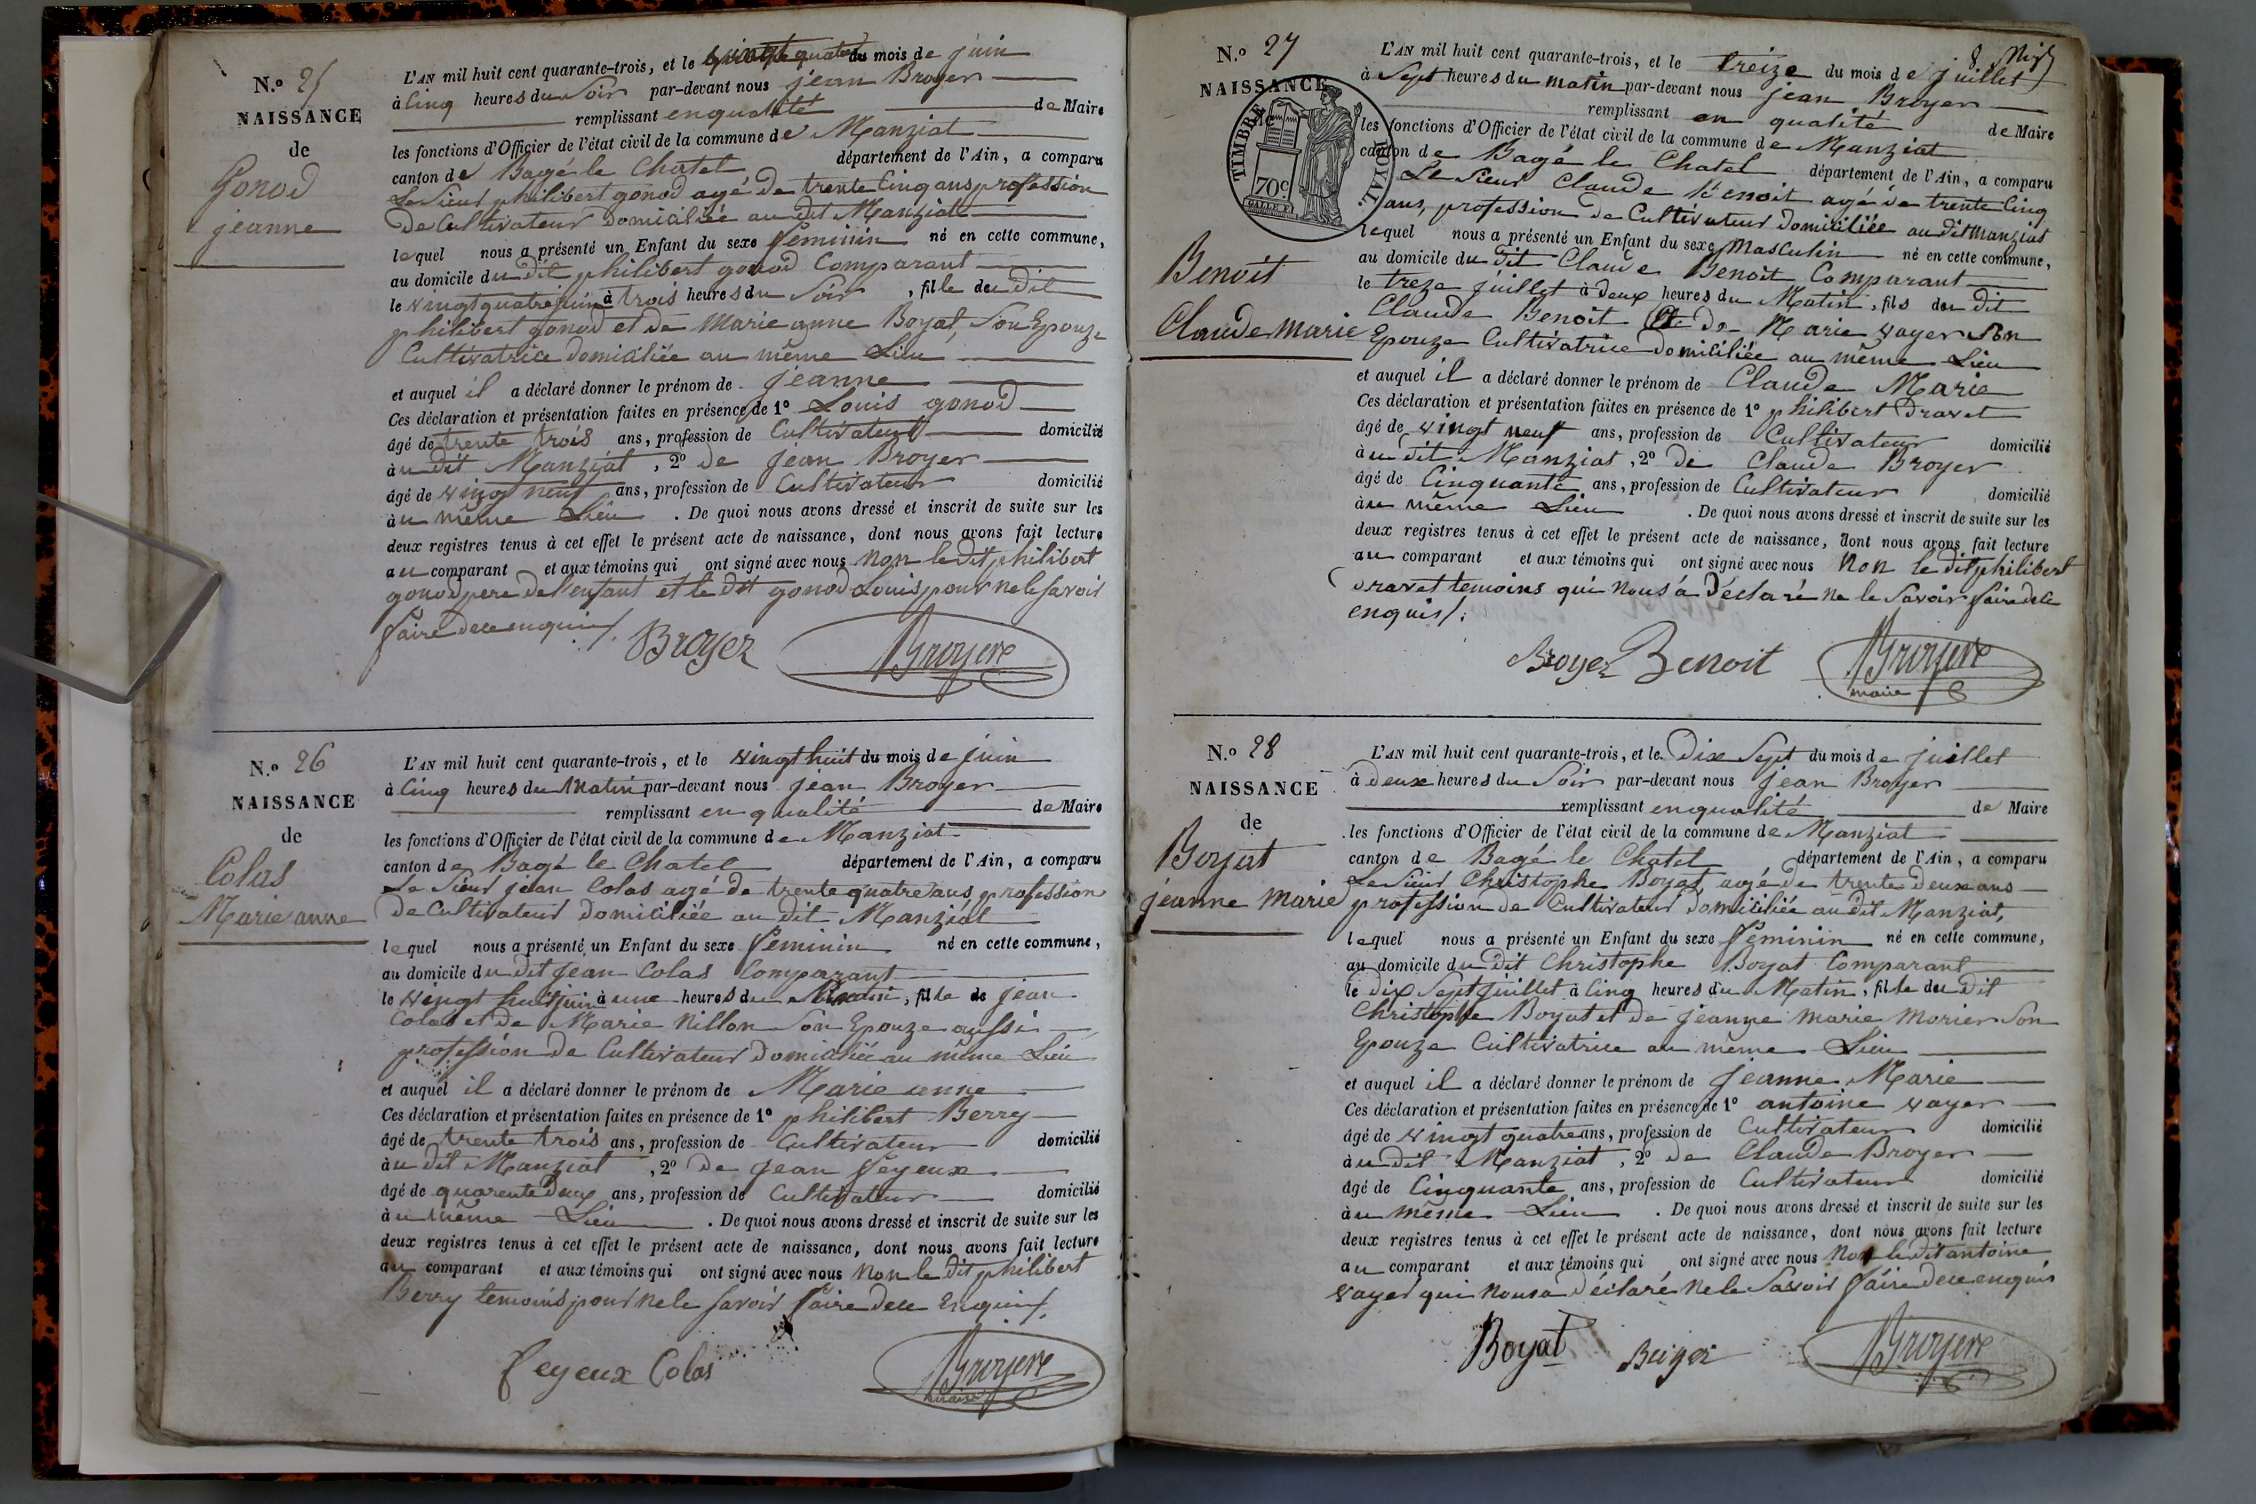 N.o 25
NAISSANCE
de
Gonod
jeanne
L'AN mil huit cent quarante-trois, et le vingt quatre du mois de juin
à Cinq heures du Soir par-devant nous jean Broyer
remplissant enqualité de Maire
les fonctions d'Officier de l'état civil de la commune de Manziat
canton de Bagé le Chatel département de l'Ain, a comparu
Le Sieur philibert gonod agé de trente Cinq ans profession
De Cultivateur Domiciliée au dit Manziat
lequel nous a présenté un Enfant du sexe feminin né en cette commune,
au domicile du dit philibert gonod Comparant
le vingt quatre juin à trois heures du Soir, fille du dit
philibert gonod et de Marie anne Boyat, Son Epouze
Cultivatrice domiciliée au même Lieu
et auquel il a déclaré donner le prénom de jeanne
Ces déclaration et présentation faites en présence de 1º Louis gonod
âgé de trente trois ans, profession de Cultivateur domicilié
àu dit Manziat, 2º de jean Broyer
âgé de vingt neuf ans, profession de Cultivateur domicilié
àu même Lieu. De quoi nous avons dressé et inscrit de suite sur les
deux registres tenus à cet effet le présent acte de naissance, dont nous avons fait lecture
au comparant et aux témoins qui ont signé avec nous Non le dit philibert
gonod pere de l'enfant et le dit gonod Louis pour ne le Savoir
faire de ce enquis/.
Broyer Broyere
N.o 26
NAISSANCE
de
Colas
Marie anne
L'AN mil huit cent quarante-trois, et le vingt huit du mois de juin
à Cinq heures du Matin par-devant nous jean Broyer
remplissant en qualité de Maire
les fonctions d'Officier de l'état civil de la commune de Manziat
canton de Bagé le Chatel département de l'Ain, a comparu
Le Sieur jean Colas agé de trente quatre ans, profession
De Cultivateur domiciliée au dit Manziat
lequel nous a présenté un Enfant du sexe feminin né en cette commune,
au domicile du dit Jean Colas Comparant
le vingt huit juin à une heures du Matin, fille de jean
Colas et de Marie Nillon Son Epouze aussi
profession de Cultivateur domiciliée au même Lieu
et auquel il a déclaré donner le prénom de Marie anne
Ces déclaration et présentation faites en présence de 1º philibert Berry
âgé de trente trois ans, profession de Cultivateur domicilié
àu dit Manziat, 2º de jean feyeux
âgé de quarente deux ans, profession de Cultivateur domicilié
àu même Lieu. De quoi nous avons dressé et inscrit de suite sur les
deux registres tenus à cet effet le présent acte de naissance, dont nous avons fait lecture
au comparant et aux témoins qui ont signé avec nous Non le dit philibert
Berry temoins pour ne le Savoir faire de ce Enquis/.
feyeux Colas Broyere
maire
N.o 27
NAISSANCE
TIMBRE ROYAL.
70c
Benoit
Claude Marie
L'AN mil huit cent quarante-trois, et le treize du mois de juillet
à Sept heures du matin par-devant nous jean Broyer
remplissant en qualité de Maire
les fonctions d'Officier de l'état civil de la commune de Manziat
canton de Bagé le Chatel département de l'Ain, a comparu
Le Sieur Claude Benoit agé de trente Cinq
ans, profession de Cultivateur domiciliée au dit Manziat
lequel nous a présenté un Enfant du sexe Masculin né en cette commune,
au domicile du dit Claude Benoit Comparant
le treze juillet à deux heures du Matin, fils du dit
Claude Benoit Et de Marie vayer Son
Epouze Cultivatrice domiciliée au même Lieu
et auquel il a déclaré donner le prénom de Claude Marie
Ces déclaration et présentation faites en présence de 1º philibert Dravet
âgé de vingt neuf ans, profession de Cultivateur domicilié
àu dit Manziat, 2º de Claude Broyer
âgé de Cinquante ans, profession de Cultivateur domicilié
àu même Lieu. De quoi nous avons dressé et inscrit de suite sur les
deux registres tenus à cet effet le présent acte de naissance, dont nous avons fait lecture
au comparant et aux témoins qui ont signé avec nous Non le dit philibert
Dravet temoins qui nous a Déclaré ne le Savoir faire de ce
enquis/.
Broyer Benoit Broyere
maire
N.o 28
NAISSANCE
de
Boyat
jeanne Marie
L'AN mil huit cent quarante-trois, et le Dix Sept du mois de juillet
à deux heures du Soir par-devant nous jean Broyer
remplissant enqualité de Maire
les fonctions d'Officier de l'état civil de la commune de Manziat
canton de Bagé le Chatel département de l'Ain, a comparu
Le Sieur Christophe Boyat, agé de trente deux ans
profession de Cultivateur domiciliée au dit Manziat,
lequel nous a présenté un Enfant du sexe feminin né en cette commune,
au domicile du dit Christophe Boyat Comparant
le dix Sept juillet à Cinq heures du Matin, fille du dit
Christophe Boyat et de jeanne Marie Morier Son
Epouze Cultivatrice au même Lieu
et auquel il a déclaré donner le prénom de jeanne Marie
Ces déclaration et présentation faites en présence de 1º antoine vayer
âgé de vingt quatre ans, profession de Cultivateur domicilié
àu dit Manziat, 2º de Claude Broyer
âgé de Cinquante ans, profession de Cultivateur domicilié
àu même Lieu. De quoi nous avons dressé et inscrit de suite sur les
deux registres tenus à cet effet le présent acte de naissance, dont nous avons fait lecture
au comparant et aux témoins qui ont signé avec nous Non le dit antoine
vayer qui nous a déclaré ne le Savoir faire de ce enquis
Boyat Broyer Broyere